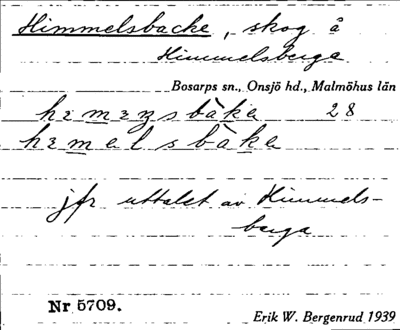 Himmelsbacke, skog å
Himmelsberga
Bosarps sn., Onsjö hd., Malmöhus län
28
hemalsbàka
jfr uttalet av Himmels-
berga
Nr 5709.
Erik W. Bergenrud 1939